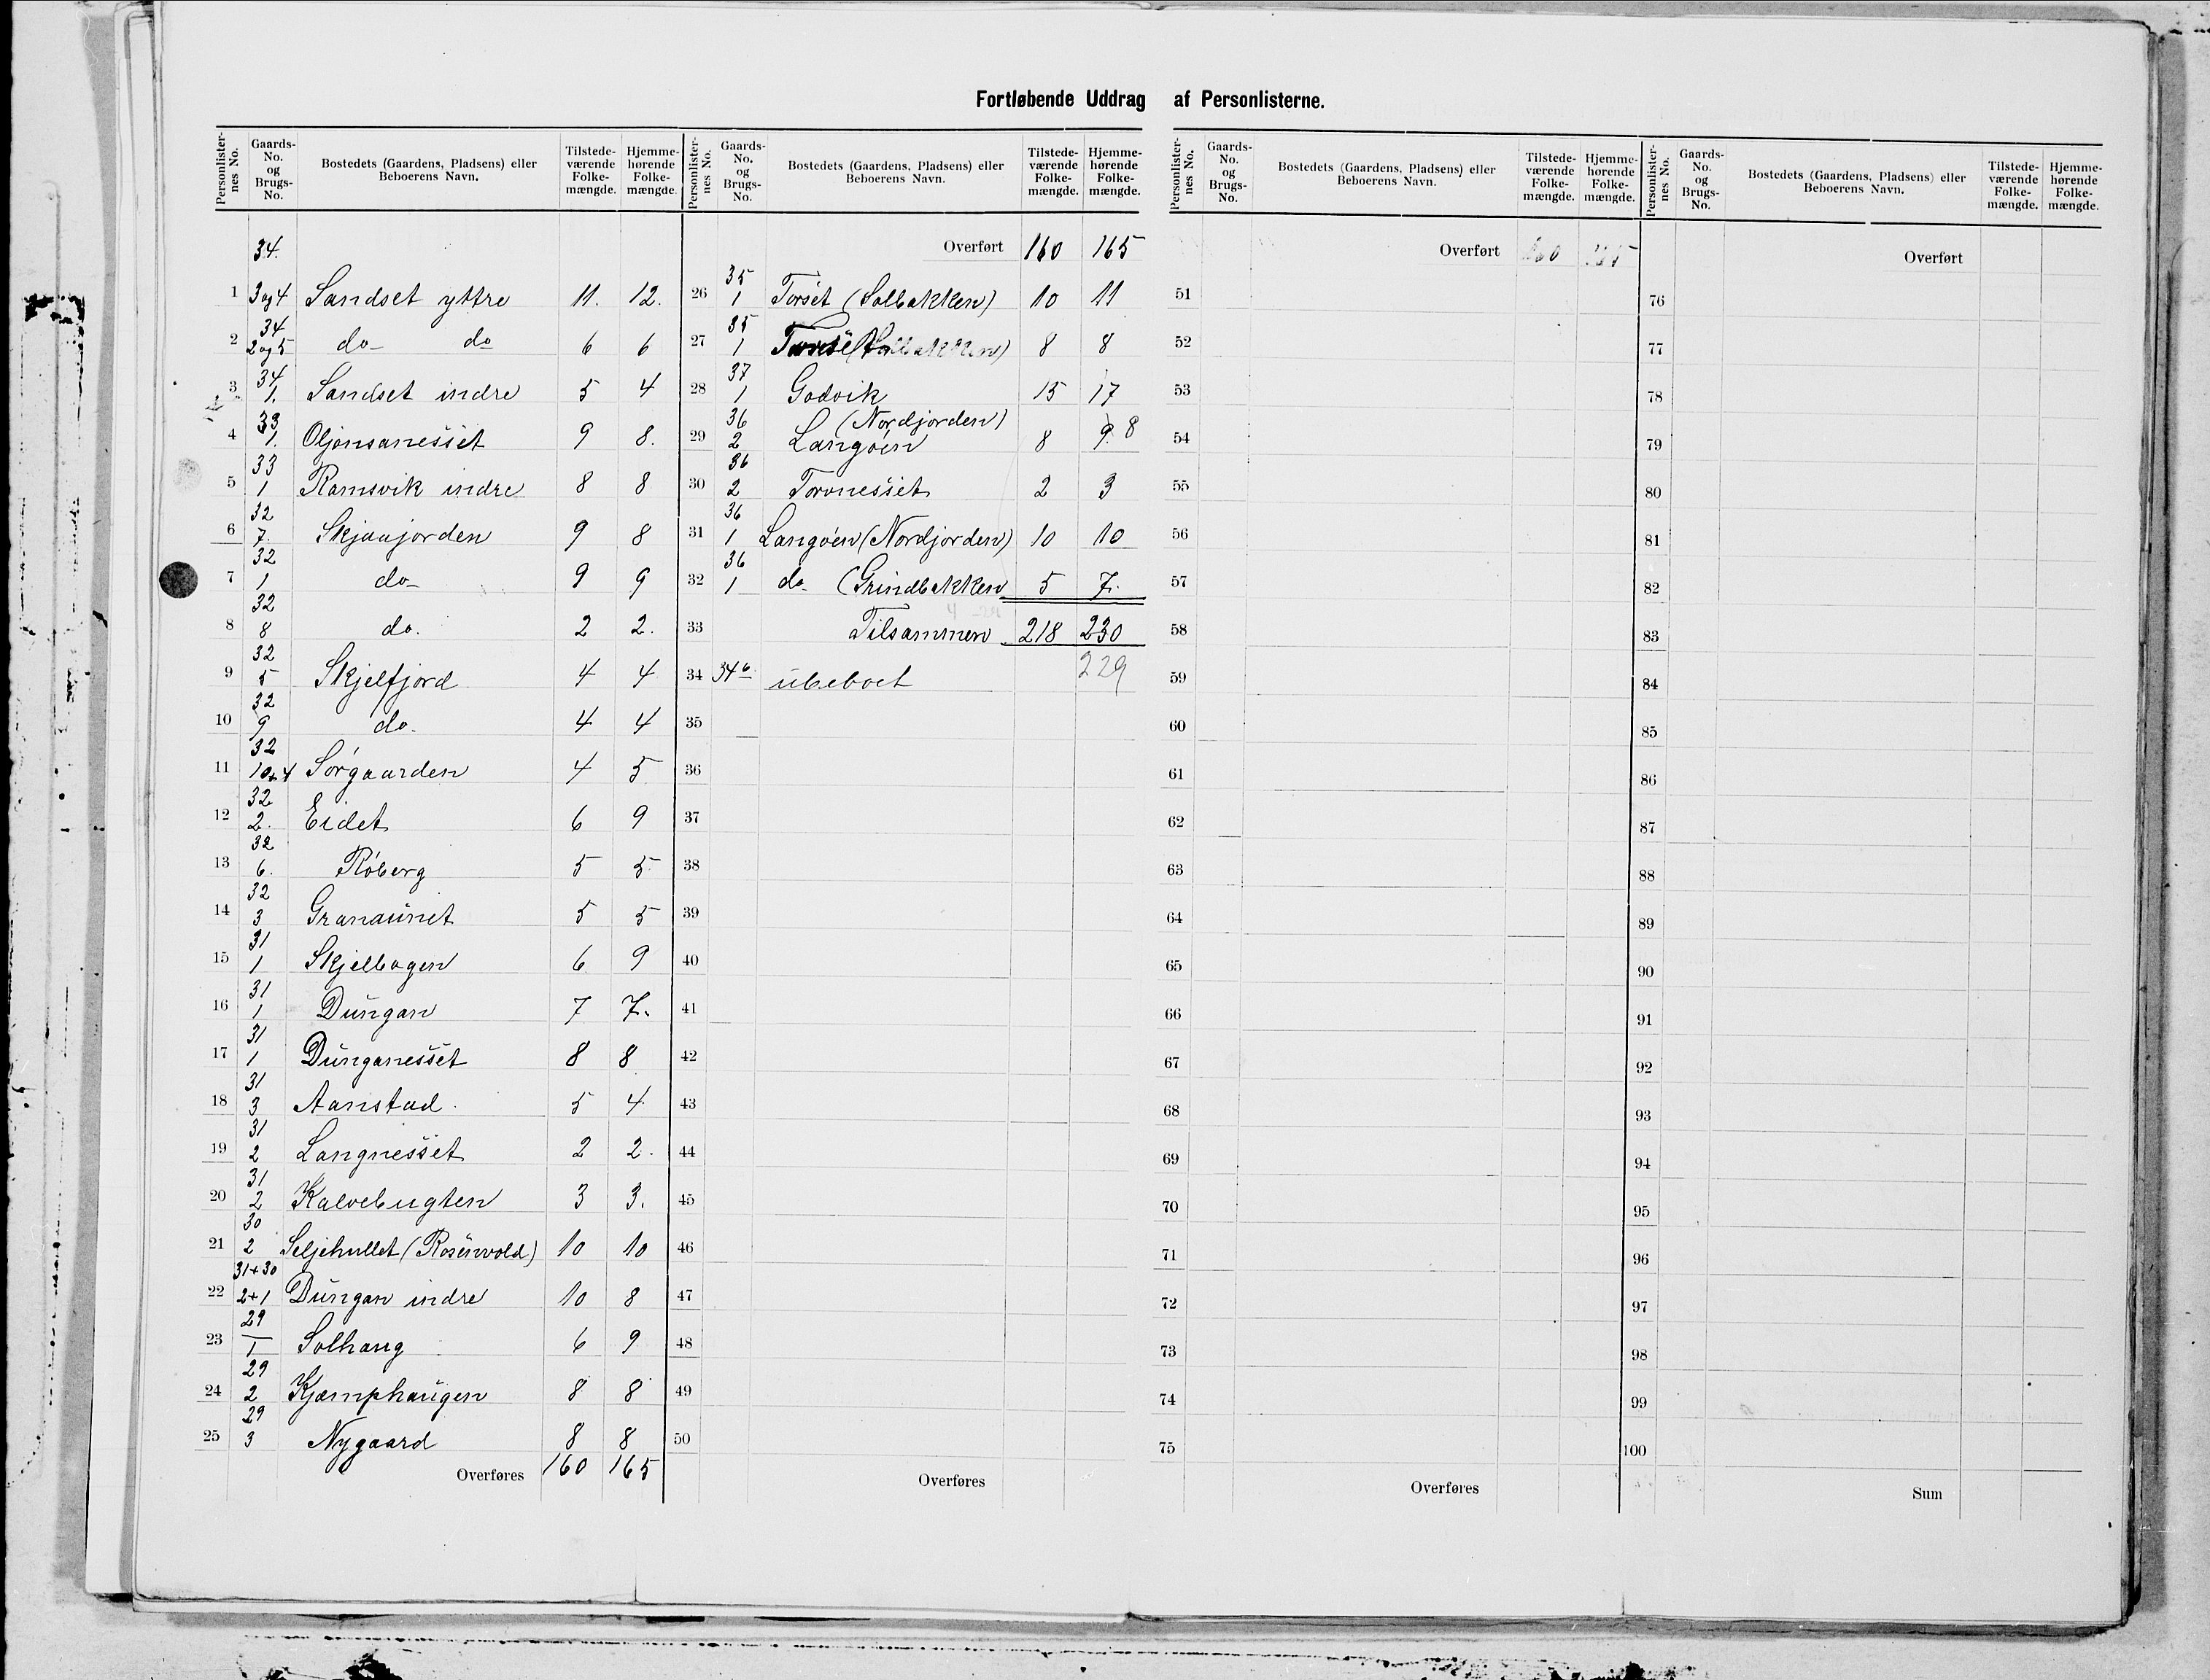 Fortløbende Uddrag af Personlisterne.
Personlister-nes No. Gaards-No. og Brugs-No. Bostedets (Gaardens, Pladsens) eller Beboerens Navn. Tilstede-værende Folke-mængde. Hjemme-hørende Folke-mængde.
34.
1 3 og 4 Sandset yttre 11. 12.
2 34 2 og 5 do do 6 6
3 34 1. Sandset indre 5 4
4 33 1. Oljonsanesset 9 8.
5 33 1 Ramsvik indre 8 8
6 32 7. Skjaajorden 9 8
7 32 1 do 9 9
8 32 8 do. 2 2.
9 32 5 Skjelfjord 4 4
10 32 9 do. 4 4
11 32 10+4 Sørgaarden 4 5
12 32 2. Eidet 6 9
13 32 6. Røberg 5 5
14 32 3 Granaunet 5 5
15 31 1 Skjelbogen 6 9
16 31 1 Dungan 7 7.
17 31 1 Dunganesset 8 8
18 31 3 Aanstad. 5 4
19 31 2 Langnesset 2 2.
20 31 2 Kalvebugten 3 3.
21 30 2 Seljehullet (Rosenvold) 10 10
22 31+30 2+1 Dungan indre 10 8
23 29 1 Solhaug 6 9
24 29 2 Kjæmphaugen 8 8
25 29 3 Nygaard 8 8
Overføres 160 165
Personlister-nes No. Gaards-No. og Brugs-No. Bostedets (Gaardens, Pladsens) eller Beboerens Navn. Tilstede-værende Folke-mængde. Hjemme-hørende Folke-mængde.
Overført 160 165
26 35 1 Torset (Solbakken) 10 11
27 35 1 Torset (Solbakken) 8 8
28 37 1 Godvik 15 17
29 36 2 Langøen (Nordjorden) 8 9. 8
30 36 2 Torvnesset 2 3
31 36 1 Langøen (Nordjorden) 10 10
32 36 1 do (Grindbakken 5 7.
33 Tilsammen 218 230
229
34 34 6 ubeboet
35
36
37
38
39
40
41
42
43
44
45
46
47
48
49
50
Overføres
Personlister-nes No. Gaards-No. og Brugs-No. Bostedets (Gaardens, Pladsens) eller Beboerens Navn. Tilstede-værende Folke-mængde. Hjemme-hørende Folke-mængde.
Overført 160 165
51
52
53
54
55
56
57
58
59
60
61
62
63
64
65
66
67
68
69
70
71
72
73
74
75
Overføres
Personlister-nes No. Gaards-No. og Brugs-No. Bostedets (Gaardens, Pladsens) eller Beboerens Navn. Tilstede-værende Folke-mængde. Hjemme-hørende Folke-mængde.
Overført
76
77
78
79
80
81
82
83
84
85
86
87
88
89
90
91
92
93
94
95
96
97
98
99
100
Sum